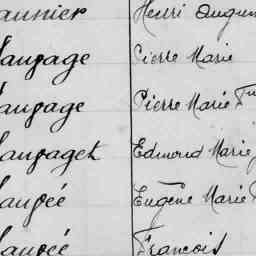 aunier Henri Augus
Saupage Pierre Marie
Saupage Pierre Marie Fr
Saupaget Edmond Marie
Saupée Eugène Marie
Saupée François